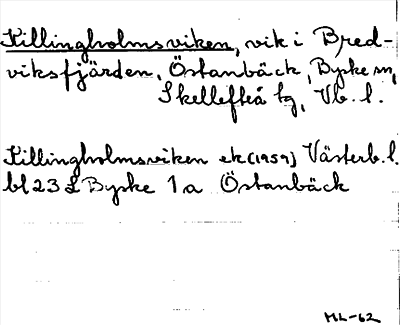 Killingholmsviken, vik i Bred-
viksfjärden, Östanbäck, Byske sn,
Skellefteå tg, Vb. l.
Killingholmsviken ek (1959) Västerb. l.
bl 23 L Byske 1 a Östanbäck
ML-62